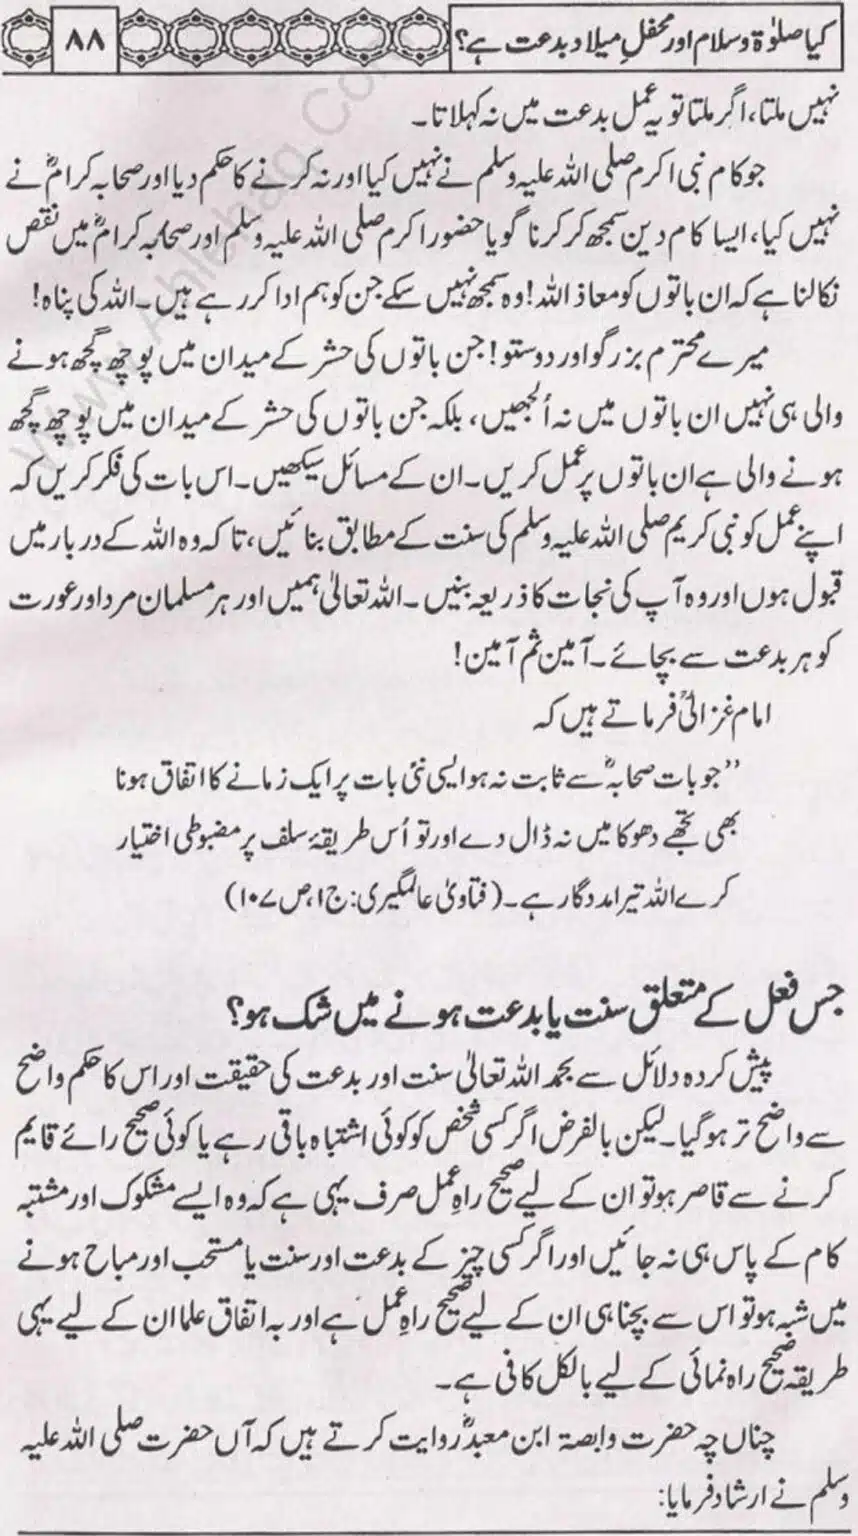 کیا صلوٰۃ و سلام اور محفلِ میلاد بدعت ہے؟
۸۸
نہیں ملتا، اگر ملتا تو یہ عمل بدعت میں نہ کہلاتا۔
جو کام نبی اکرم صلی اللہ علیہ وسلم نے نہیں کیا اور نہ کرنے کا حکم دیا اور صحابہ کرامؓ نے
نہیں کیا، ایسا کام دین سمجھ کر کرنا گویا حضور اکرم صلی اللہ علیہ وسلم اور صحابہ کرامؓ میں نقص
نکالنا ہے کہ ان باتوں کو معاذ اللہ! وہ سمجھ نہیں سکے جن کو ہم ادا کر رہے ہیں۔ اللہ کی پناہ!
میرے محترم بزرگو اور دوستو! جن باتوں کی حشر کے میدان میں پوچھ گچھ ہونے
والی ہی نہیں ان باتوں میں نہ اُلجھیں، بلکہ جن باتوں کی حشر کے میدان میں پوچھ گچھ
ہونے والی ہے ان باتوں پر عمل کریں۔ ان کے مسائل سیکھیں۔ اس بات کی فکر کریں کہ
اپنے عمل کو نبی کریم صلی اللہ علیہ وسلم کی سنت کے مطابق بنائیں، تاکہ وہ اللہ کے دربار میں
قبول ہوں اور وہ آپ کی نجات کا ذریعہ بنیں۔ اللہ تعالیٰ ہمیں اور ہر مسلمان مرد اور عورت
کو ہر بدعت سے بچائے۔ آمین ثم آمین!
امام غزالیؒ فرماتے ہیں کہ
”جو بات صحابہؓ سے ثابت نہ ہو ایسی نئی بات پر ایک زمانے کا اتفاق ہونا
بھی تجھے دھوکا میں نہ ڈال دے اور تو اُس طریقۂ سلف پر مضبوطی اختیار
کرے اللہ تیرا مددگار ہے۔ (فتاویٰ عالمگیری: ج۱، ص۱۰۷)
جس فعل کے متعلق سنت یا بدعت ہونے میں شک ہو؟
پیش کردہ دلائل سے بحمد اللہ تعالیٰ سنت اور بدعت کی حقیقت اور اس کا حکم واضح
سے واضح تر ہوگیا۔ لیکن بالفرض اگر کسی شخص کو کوئی اشتباہ باقی رہے یا کوئی صحیح رائے قایم
کرنے سے قاصر ہو تو ان کے لیے صحیح راہِ عمل صرف یہی ہے کہ وہ ایسے مشکوک اور مشتبہ
کام کے پاس ہی نہ جائیں اور اگر کسی چیز کے بدعت اور سنت یا مستحب اور مباح ہونے
میں شبہ ہو تو اس سے بچنا ہی ان کے لیے صحیح راہِ عمل ہے اور بہ اتفاق علما ان کے لیے یہی
طریقہ صحیح راہ نمائی کے لیے بالکل کافی ہے۔
چناں چہ حضرت وابصۃ ابن معبدؓ روایت کرتے ہیں کہ آں حضرت صلی اللہ علیہ
وسلم نے ارشاد فرمایا:
Www.Ahlehaq.Com